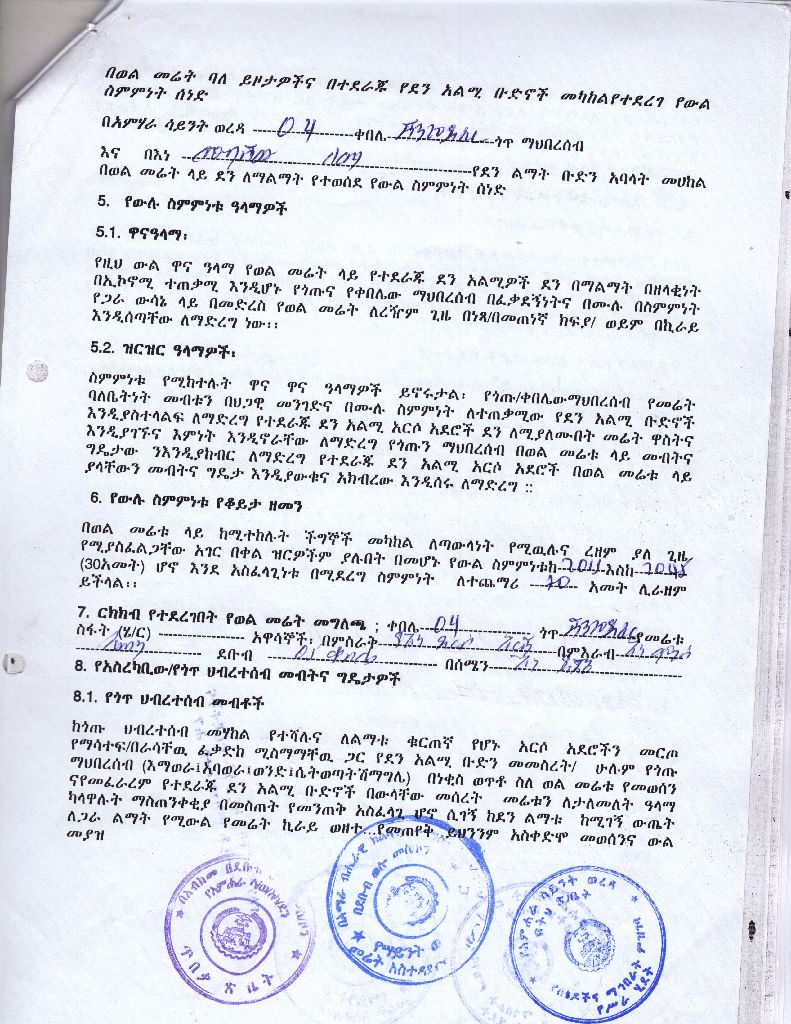 በወል መሬት ባለ ይዞታዎችና በተደራጁ የደን አልሚ ቡድኖች መካከልየተደረገ የውል
ስምምነት ሰነድ
በአምሃራ ሳይንት ወረዳ ---- 04 ----ቀበሌ ---- ጎጥ ማህበረሰብ
እና በእነ ---- ----የደን ልማት ቡድን አባላት መሀከል
በወል መሬት ላይ ደን ለማልማት የተወሰደ የውል ስምምነት ሰነድ
5. የውሉ ስምምነቱ ዓላማዎች
5.1. ዋናዓላማ፡
የዚህ ውል ዋና ዓላማ የወል መሬት ላይ የተደራጁ ደን አልሚዎች ደን በማልማት በዘላቂነት
በኢኮኖሚ ተጠቃሚ እንዲሆኑ የጎጡና የቀበሌው ማህበረሰብ በፈቃደኝነትና በሙሉ በስምምነት
የጋራ ውሳኔ ላይ በመድረስ የወል መሬት ለረዥም ጊዜ በነጻ/በመጠነኛ ክፍያ/ ወይም በኪራይ
እንዲሰጣቸው ለማድረግ ነው፡፡
5.2. ዝርዝር ዓላማዎች፡
ስምምነቱ የሚከተሉት ዋና ዋና ዓላማዎች ይኖሩታል፡ የጎጡ/ቀበሌውማህበረሰብ የመሬት
ባለቤትነት መብቱን በህጋዊ መንገድና በሙሉ ስምምነት ለተጠቃሚው የደን አልሚ ቡድኖች
እንዲያስተላልፍ ለማድረግ የተደራጁ ደን አልሚ አርሶ አደሮች ደን ለሚያለሙበት መሬት ዋስትና
እንዲያገኙና እምነት እንዲኖራቸው ለማድረግ የጎጡን ማህበረሰብ በወል መሬቱ ላይ መብትና
ግዴታው ንእንዲያከብር ለማድረግ የተደራጁ ደን አልሚ አርሶ አደሮች በወል መሬቱ ላይ
ያላቸውን መብትና ግዴታ እንዲያውቁና አክብረው እንዲሰሩ ለማድረግ ::
6. የውሉ ስምምነቱ የቆይታ ዘመን
በወል መሬቱ ላይ ከሚተከሉት ችግኞች መካከል ለጣውላነት የሚዉሉና ረዘም ያለ ጊዜ
የሚያስፈልጋቸው አገር በቀል ዝርዎችም ያሉበት በመሆኑ የውል ስምምነቱከ---- ----እስከ---- ----
(30አመት) ሆኖ እንደ አስፈላጊነቱ በሚደረግ ስምምነት ለተጨማሪ ---- ---- አመት ሊራዘም
ይችላል፡፡
7. ርክክብ የተደረገበት የወል መሬት መግለጫ ; ቀበሌ---- 04 ---- ጎጥ---- የመሬቱ
ስፋት (ሄ/ር) ---- አዋሳኞች፡ በምስራቅ---- ----በምእራብ----
---- ደቡብ ---- ---- በሰሜን---- ----
8. የአስረካቢው/የጎጥ ህብረተሰብ መብትና ግዴታዎች
8.1. የጎጥ ህብረተሰብ መብቶች
ከጎጡ ህብረተሰብ መሃከል የተሻሉና ለልማቱ ቁርጠኛ የሆኑ አርሶ አደሮችን መርጦ
የማሳተፍ/በራሳቸዉ ፈቃድከ ሚስማማቸዉ ጋር የደን አልሚ ቡድን መመስረት/ ሁሉም የጎጡ
ማህበረሰብ (አማወራ፤እባወራ፤ወንድ፤ሴትወጣት፡ሽማግሌ) በነቂስ ወጥቶ ስለ ወል መሬቱ የመወሰን
ናየመፈራረም የተደራጁ ደን አልሚ ቡድኖች በውላቸው መሰረት መሬቱን ለታለመለት ዓላማ
ካላዋሉት ማስጠንቀቂያ በመስጠት የመንጠቅ አስፈላጊ ሆኖ ሲገኝ ከደን ልማቱ ከሚገኝ ውጤት
ለጋራ ልማት የሚውል የመሬት ኪራይ ወዘተ...የመጠየቅ ይህንንም አስቀድሞ መወሰንና ውል
መያዝ